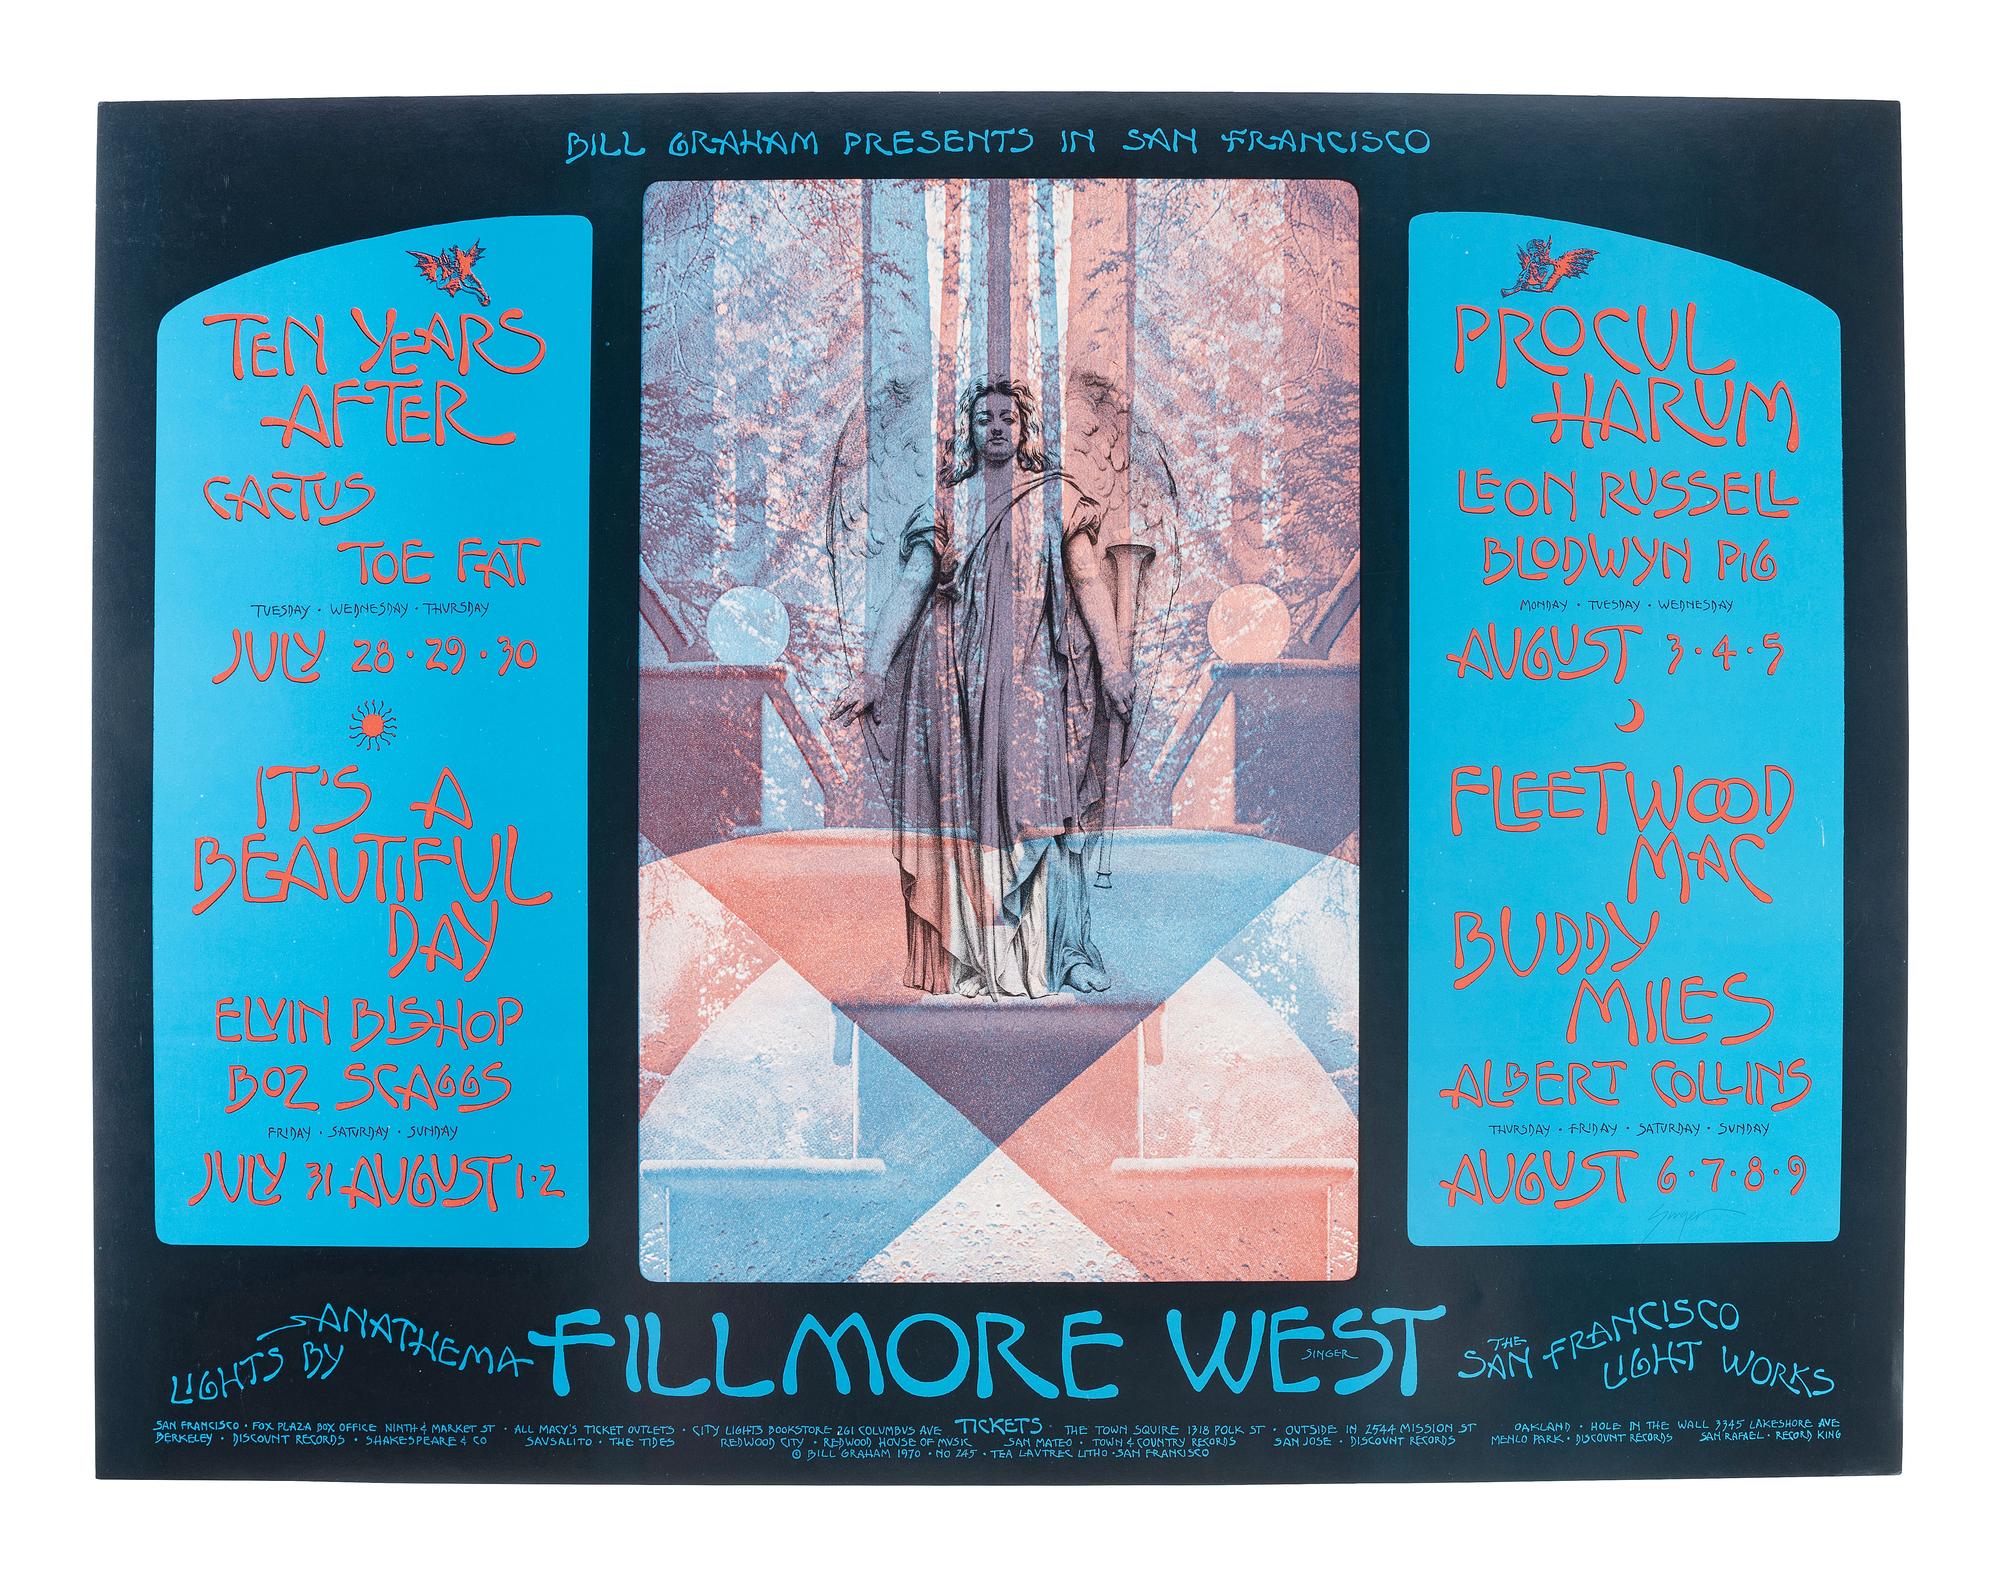 BILL GRAHAM PRESENTS IN SAN FRANCISCO
TEN YEARS
AFTER
CACTUS
TOE FAT
TUESDAY · WEDNESDAY · THURSDAY
JULY 28 · 29 · 30
IT'S A
BEAUTIFUL
DAY
ELVIN BISHOP
BOZ SCAGGS
FRIDAY · SATURDAY · SUNDAY
JULY 31 AUGUST 1 · 2
PROCUL
HARUM
LEON RUSSELL
BLODWYN PIG
MONDAY · TUESDAY · WEDNESDAY
AUGUST 3 · 4 · 5
FLEETWOOD
MAC
BUDDY
MILES
ALBERT COLLINS
THURSDAY · FRIDAY · SATURDAY · SUNDAY
AUGUST 6 · 7 · 8 · 9
Singer
LIGHTS BY
ANATHEMA
FILLMORE WEST
SINGER
THE
SAN FRANCISCO
LIGHT WORKS
SAN FRANCISCO · FOX PLAZA BOX OFFICE NINTH & MARKET ST · ALL MACY'S TICKET OUTLETS · CITY LIGHTS BOOKSTORE 261 COLUMBUS AVE TICKETS · THE TOWN SQUIRE 1318 POLK ST · OUTSIDE IN 2544 MISSION ST OAKLAND · HOLE IN THE WALL 3345 LAKESHORE AVE
BERKELEY · DISCOUNT RECORDS · SHAKESPEARE & CO SAUSALITO · THE TIDES REDWOOD CITY · REDWOOD HOUSE OF MUSIC SAN MATEO · TOWN & COUNTRY RECORDS SAN JOSE · DISCOUNT RECORDS MENLO PARK · DISCOUNT RECORDS SAN RAFAEL · RECORD KING
© BILL GRAHAM 1970 · NO 245 · TEA LAUTREC LITHO · SAN FRANCISCO